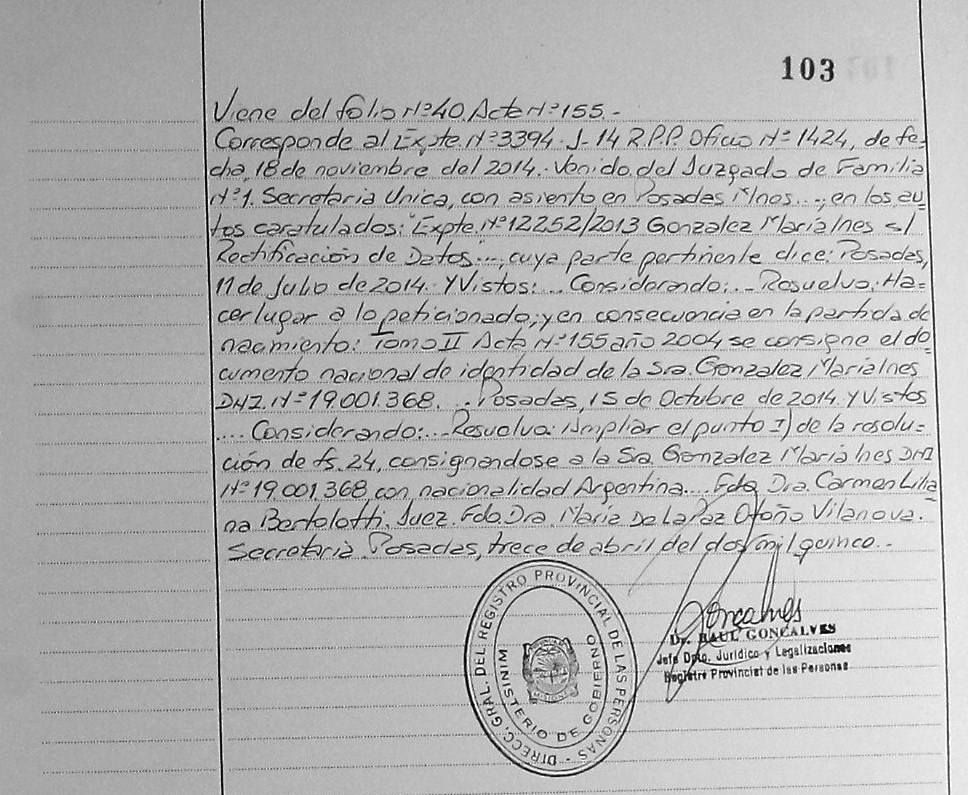 103
Viene del folio Nº 40. Acta Nº 155.-
Corresponde al Expte. Nº 3394-J-14 R.P.P. Oficio Nº 1424, de fe-
cha, 18 de noviembre del 2014. Venido del Juzgado de Familia
Nº 1. Secretaria Unica, con asiento en Posadas Mnes...., en los au-
tos caratulados: "Expte. Nº 12252/2013 Gonzalez Maria Ines s/
Rectificación de Datos...., cuya parte pertinente dice: Posadas,
11 de Julio de 2014. Y Vistos:... Considerando:... Resuelvo: Ha-
cer lugar a lo peticionado; y en consecuencia en la partida de
nacimiento: Tomo II Acta Nº 155 año 2004 se consigne el do-
cumento nacional de identidad de la Sra. Gonzalez Maria Ines
DNI. Nº 19.001.368. ... Posadas, 15 de Octubre de 2014. Y Vistos
.... Considerando:... Resuelvo: Ampliar el punto I) de la resolu-
ción de fs. 24, consignandose a la Sra. Gonzalez Maria Ines DNI
Nº 19.001.368 con nacionalidad Argentina.... Fdo. Dra. Carmen Lilia
na Bertolotti. Juez. Fdo. Dra. Maria De La Paz Otaño Vilanova.
Secretaria. Posadas, trece de abril del dos mil quince.-
Goncalves
Dr. RAUL GONCALVES
Jefe Dpto. Jurídico y Legalizaciones
Registro Provincial de las Personas
DIRECC. GRAL. DEL REGISTRO PROVINCIAL DE LAS PERSONAS
MINISTERIO DE GOBIERNO
MISIONES